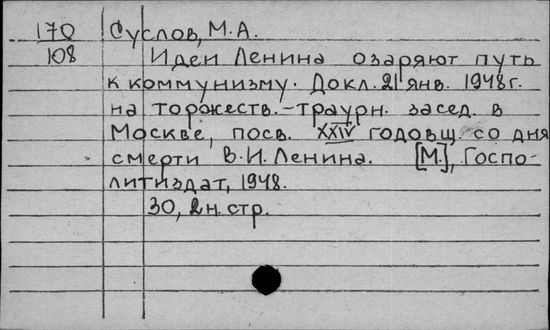 170 Суслов, М.А.
108 Идеи Ленина озаряют путь
к коммунизму. Докл. 21 янв. 1948 г.
на торжеств.-траурн. засед. в
Москве, посв. XXIV годовщ. со дня
смерти В.И. Ленина. [М.], Госпо-
литиздат, 1948.
30, 2 н. стр.